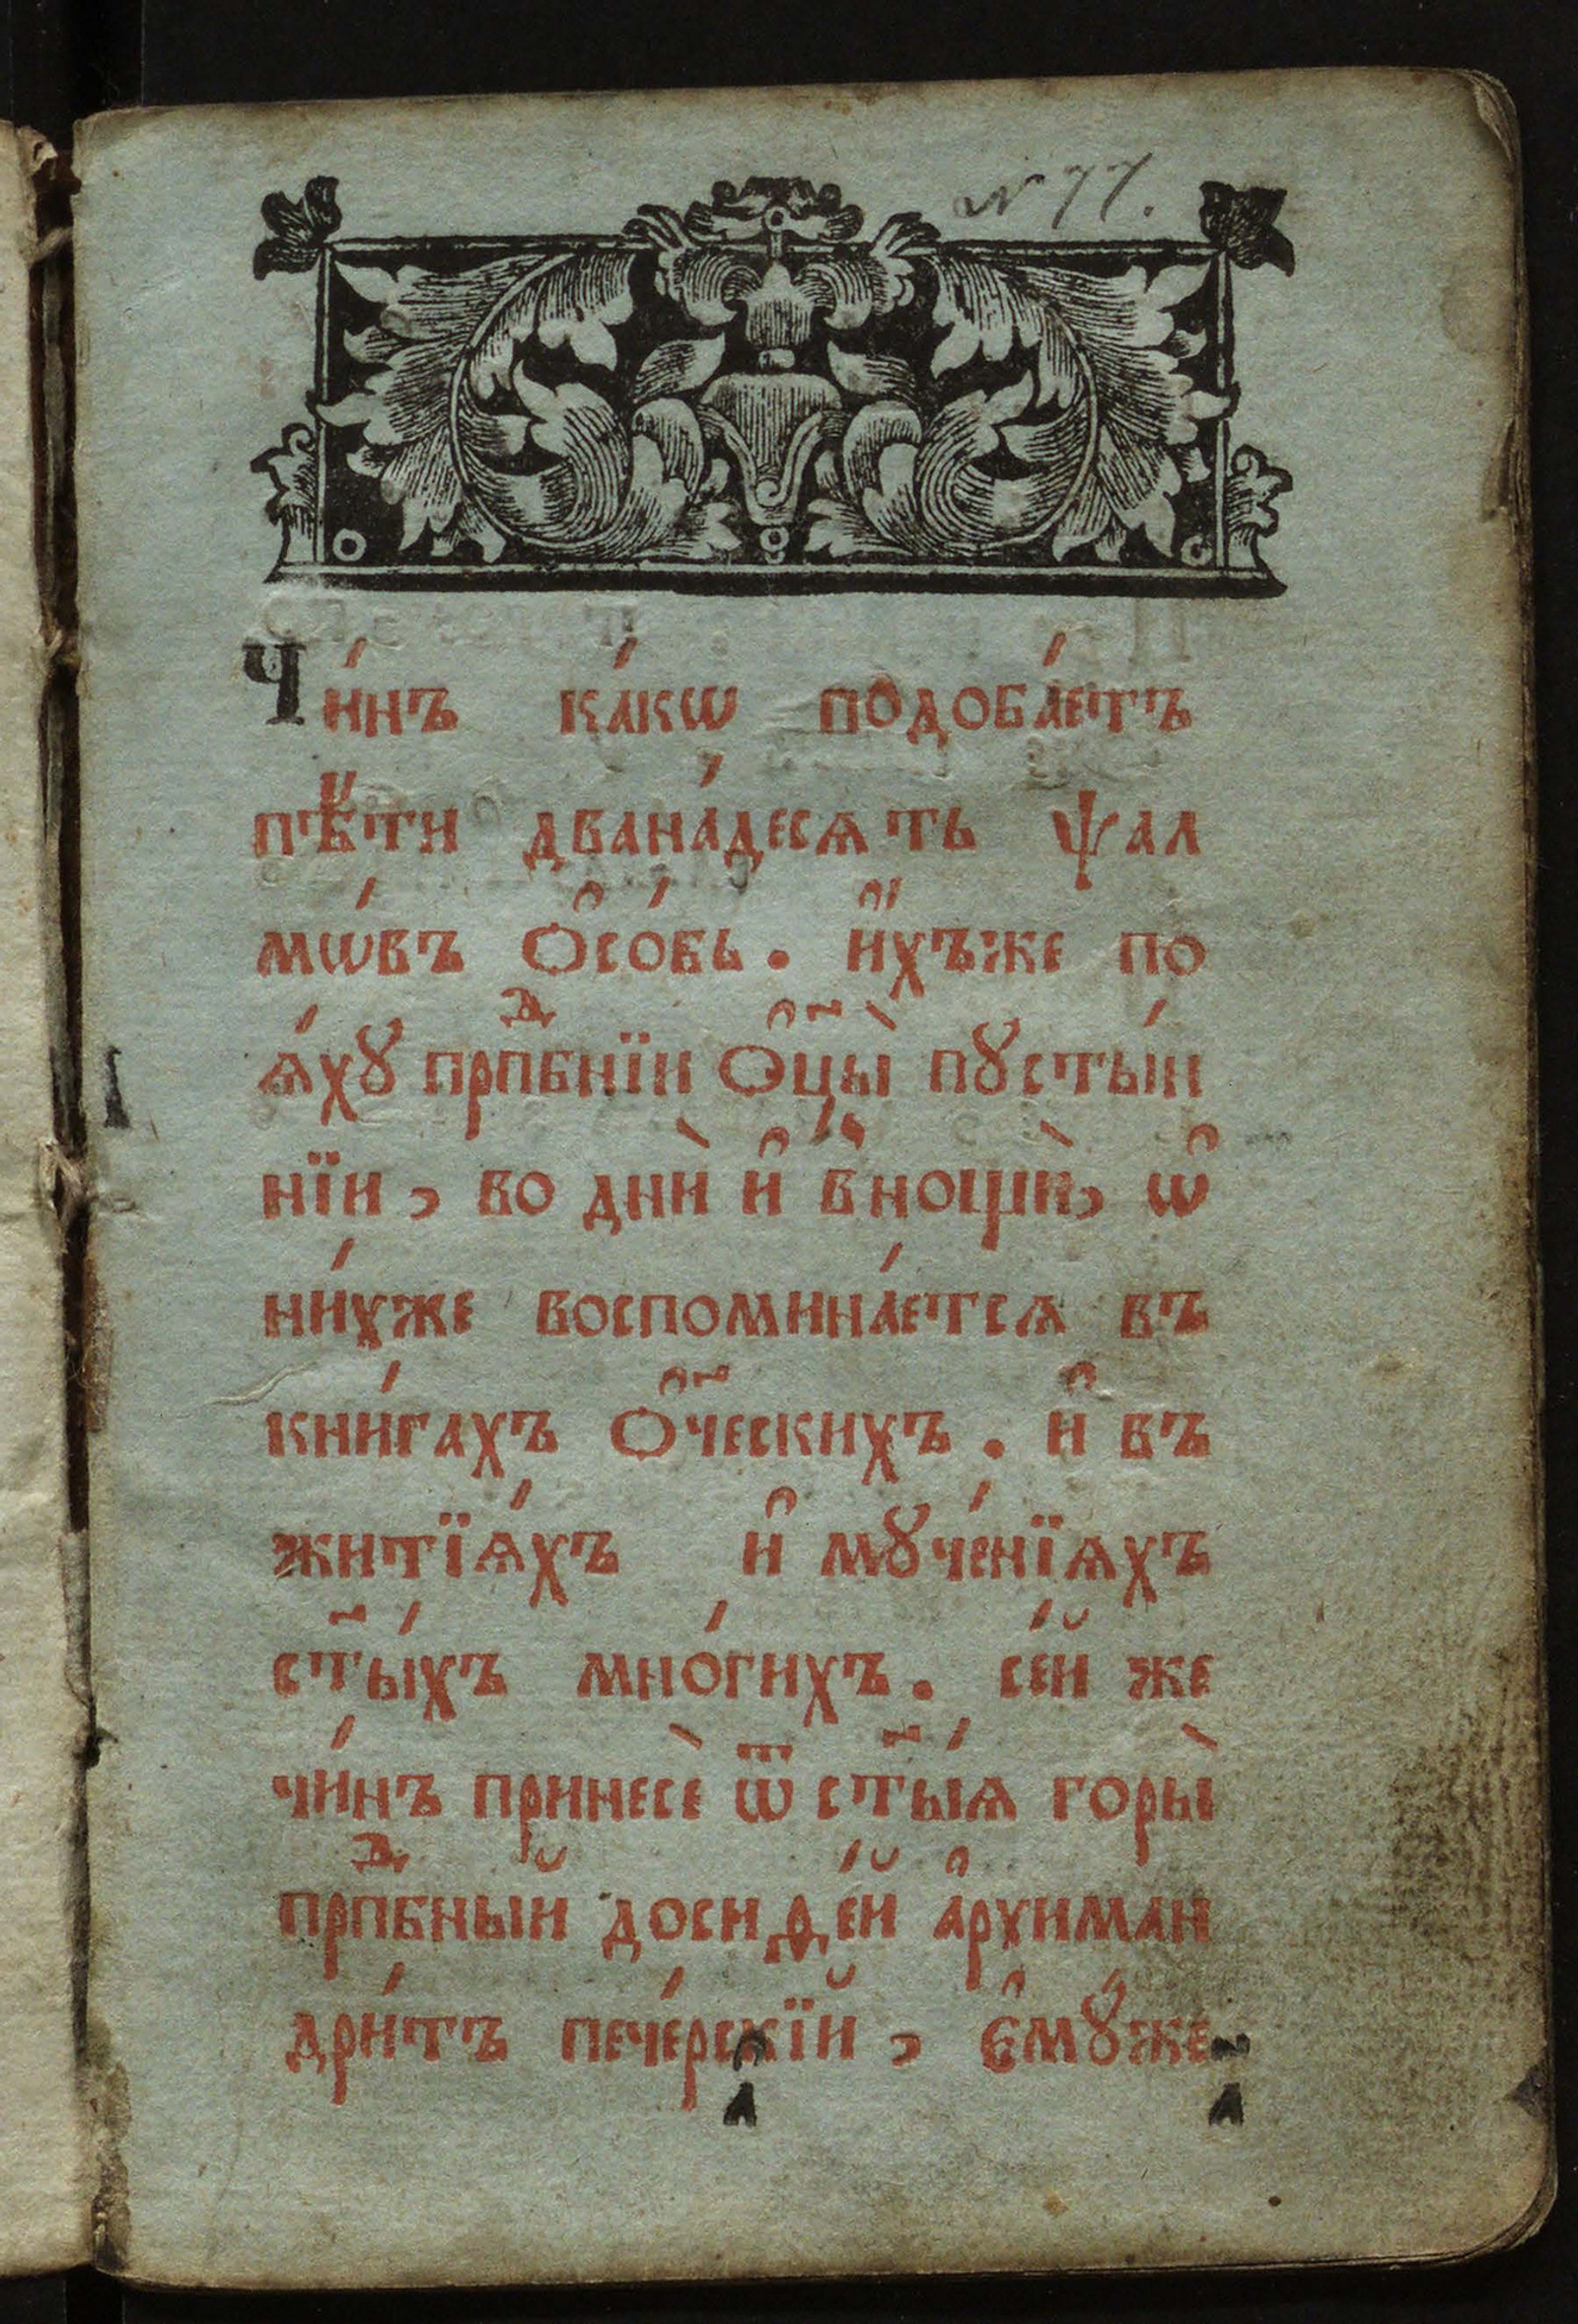 № 77.
Чи́нъ ка́кѡ подоба́етъ
пѣ́ти двана́десѧть ѱал
мѡ́въ ѻ҆со́бь. и҆́хъже по
ѧ́хꙋ прпⷣбнїи ѻ҆цы҃̀ пꙋсты́н
нїи, во днѝ и҆ в̾нощѝ, ѡ҆
ни́хже воспомина́етсѧ въ
кни́гахъ ѻ҆ч҃ескихъ. и҆ въ
житїѧ́хъ и҆ мꙋче́нїѧхъ
ст҃ы́хъ мно́гихъ. се́й же
чи́нъ принесѐ ѿ ст҃ы́ѧ горы̀
прпⷣбный досиѳе́й а҆рхиман
дри́тъ пече́рскїй, є҆мꙋ́же
а҆ а҃